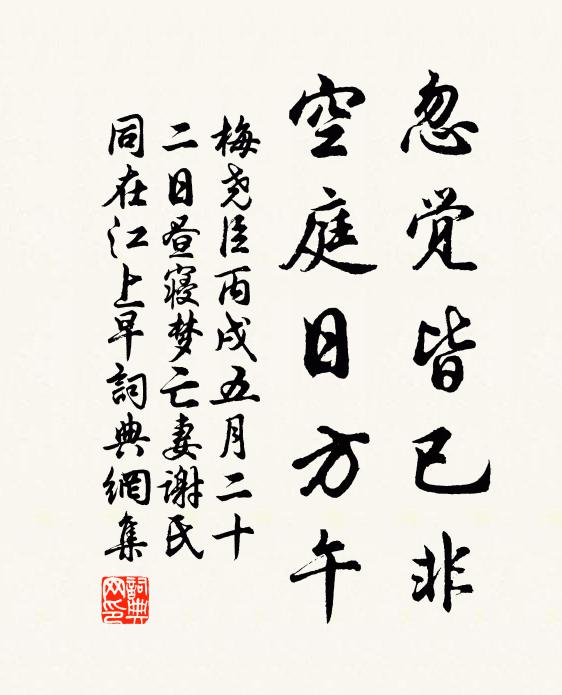 忽觉皆已非
空庭日方午
梅尧臣丙戌五月二十
二日昼寝梦亡妻谢氏
同在江上早詞典網集
詞典
网印